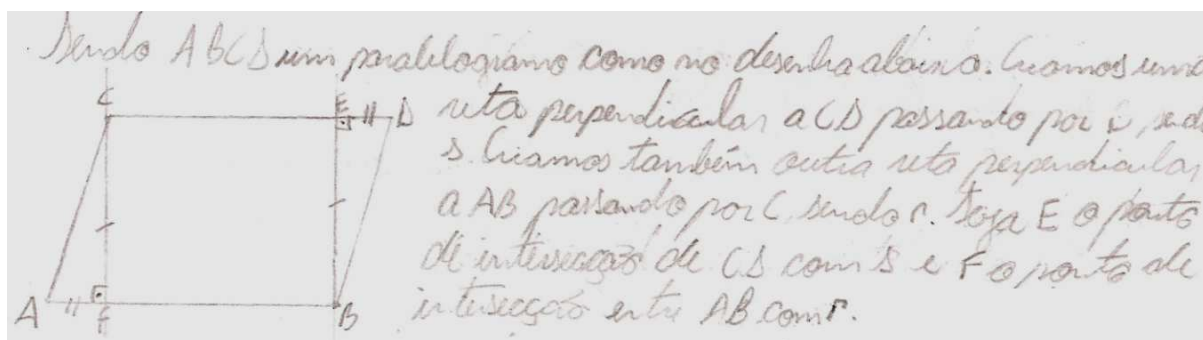 Sendo ABCD um paralelogramo como no desenho abaixo. Criamos uma
C E D reta perpendicular a CD passando por B, send
s. Criamos também outra reta perpendicular
a AB passando por C sendo r. Seja E o ponto
de intersecção de CD com s e F o ponto de
A F B intersecção entre AB com r.